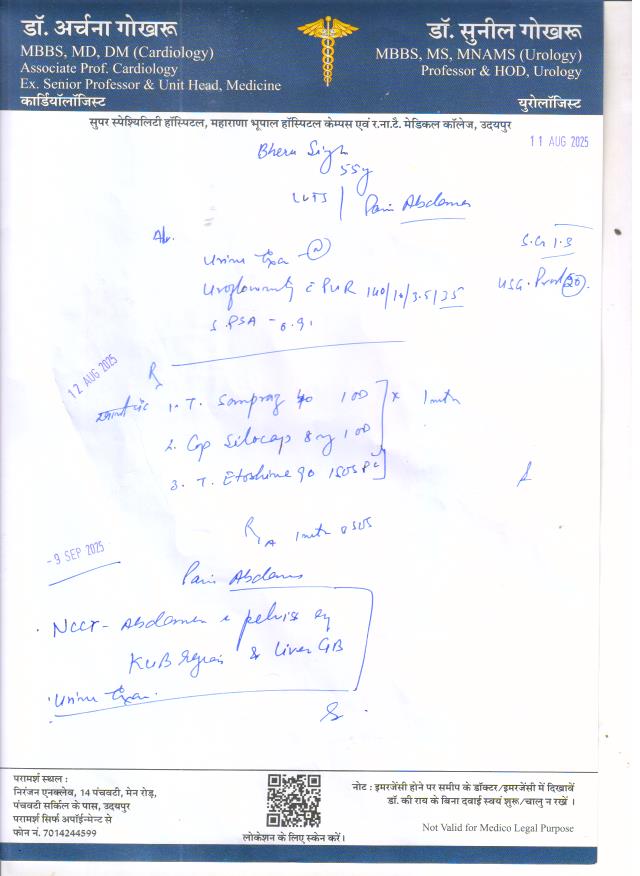 डॉ. अर्चना गोखरू
MBBS, MD, DM (Cardiology)
Associate Prof. Cardiology
Ex. Senior Professor & Unit Head, Medicine
कार्डियॉलॉजिस्ट
डॉ. सुनील गोखरू
MBBS, MS, MNAMS (Urology)
Professor & HOD, Urology
युरोलॉजिस्ट
सुपर स्पेश्यिलिटी हॉस्पिटल, महाराणा भूपाल हॉस्पिटल केम्पस एवं र.ना.टै. मेडिकल कॉलेज, उदयपुर
11 AUG 2025
Bheru Singh
55y
LUTS | Pain Abdomen
Adv.
Urine Exa - N
S.Cr 1.3
Uroflowmetry c PVR 140/10/3.5/25
USG. Prost 20
S.PSA - 0.91
12 AUG 2025
R
1. T. Sompraz 40 1OD x 1mth
2. Cap Silocap 8mg 1OD
3. T. Etoshine 90 1SOS PC
R/A 1mth / SOS
-9 SEP 2025
Pain Abdomen
NCCT- Abdomen & pelvis
KUB region & Liver GB
Urine Exa.
परामर्श स्थल :
निरंजन एनक्लेव, 14 पंचवटी, मेन रोड़,
पंचवटी सर्किल के पास, उदयपुर
परामर्श सिर्फ अपॉईन्मेन्ट से
फोन नं. 7014244599
लोकेशन के लिए स्केन करें।
नोट : इमरजेंसी होने पर समीप के डॉक्टर/इमरजेंसी में दिखावें
डॉ. की राय के बिना दवाई स्वयं शुरू/चालु न रखें ।
Not Valid for Medico Legal Purpose